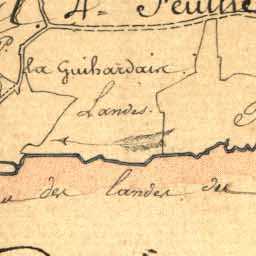 4e Feuille
P.
la Guihardais.
Landes.
des landes de